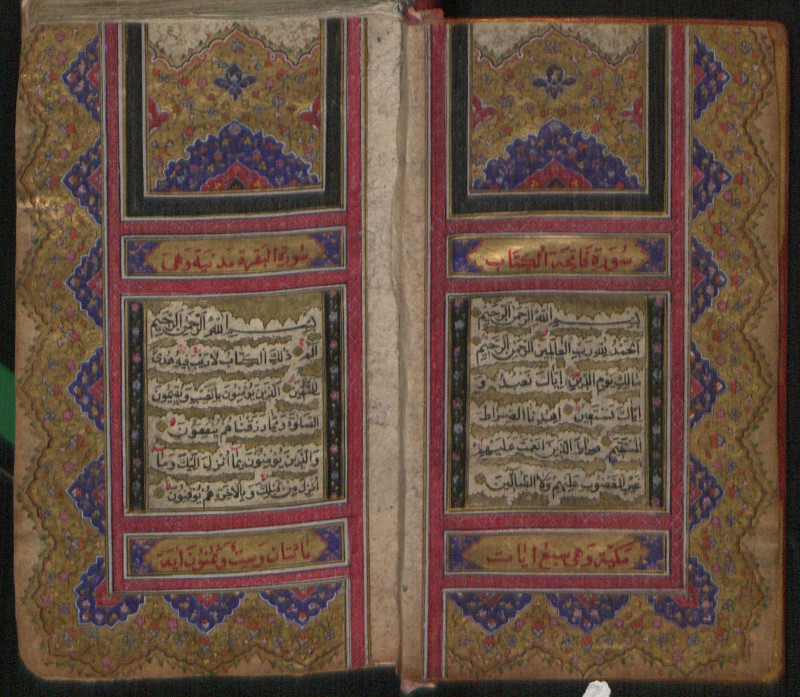 سورة فاتحة الكتاب
بسم الله الرحمن الرحيم
الحمد لله رب العالمين الرحمن الرحيم
مالك يوم الدين إياك نعبد و
إياك نستعين اهدنا الصراط
المستقيم صراط الذين انعمت عليهم
غير المغضوب عليهم ولا الضالين
مكية وهى سبع آيات
سورة البقرة مدنية وهى
بسم الله الرحمن الرحيم
الم ذلك الكتاب لا ريب فيه هدى
للمتقين الذين يؤمنون بالغيب ويقيمون
الصلوة ومما رزقناهم ينفقون
والذين يؤمنون بما أنزل اليك وما
أنزل من قبلك وبالآخرة هم يوقنون
مائتان وست وثمنون آية